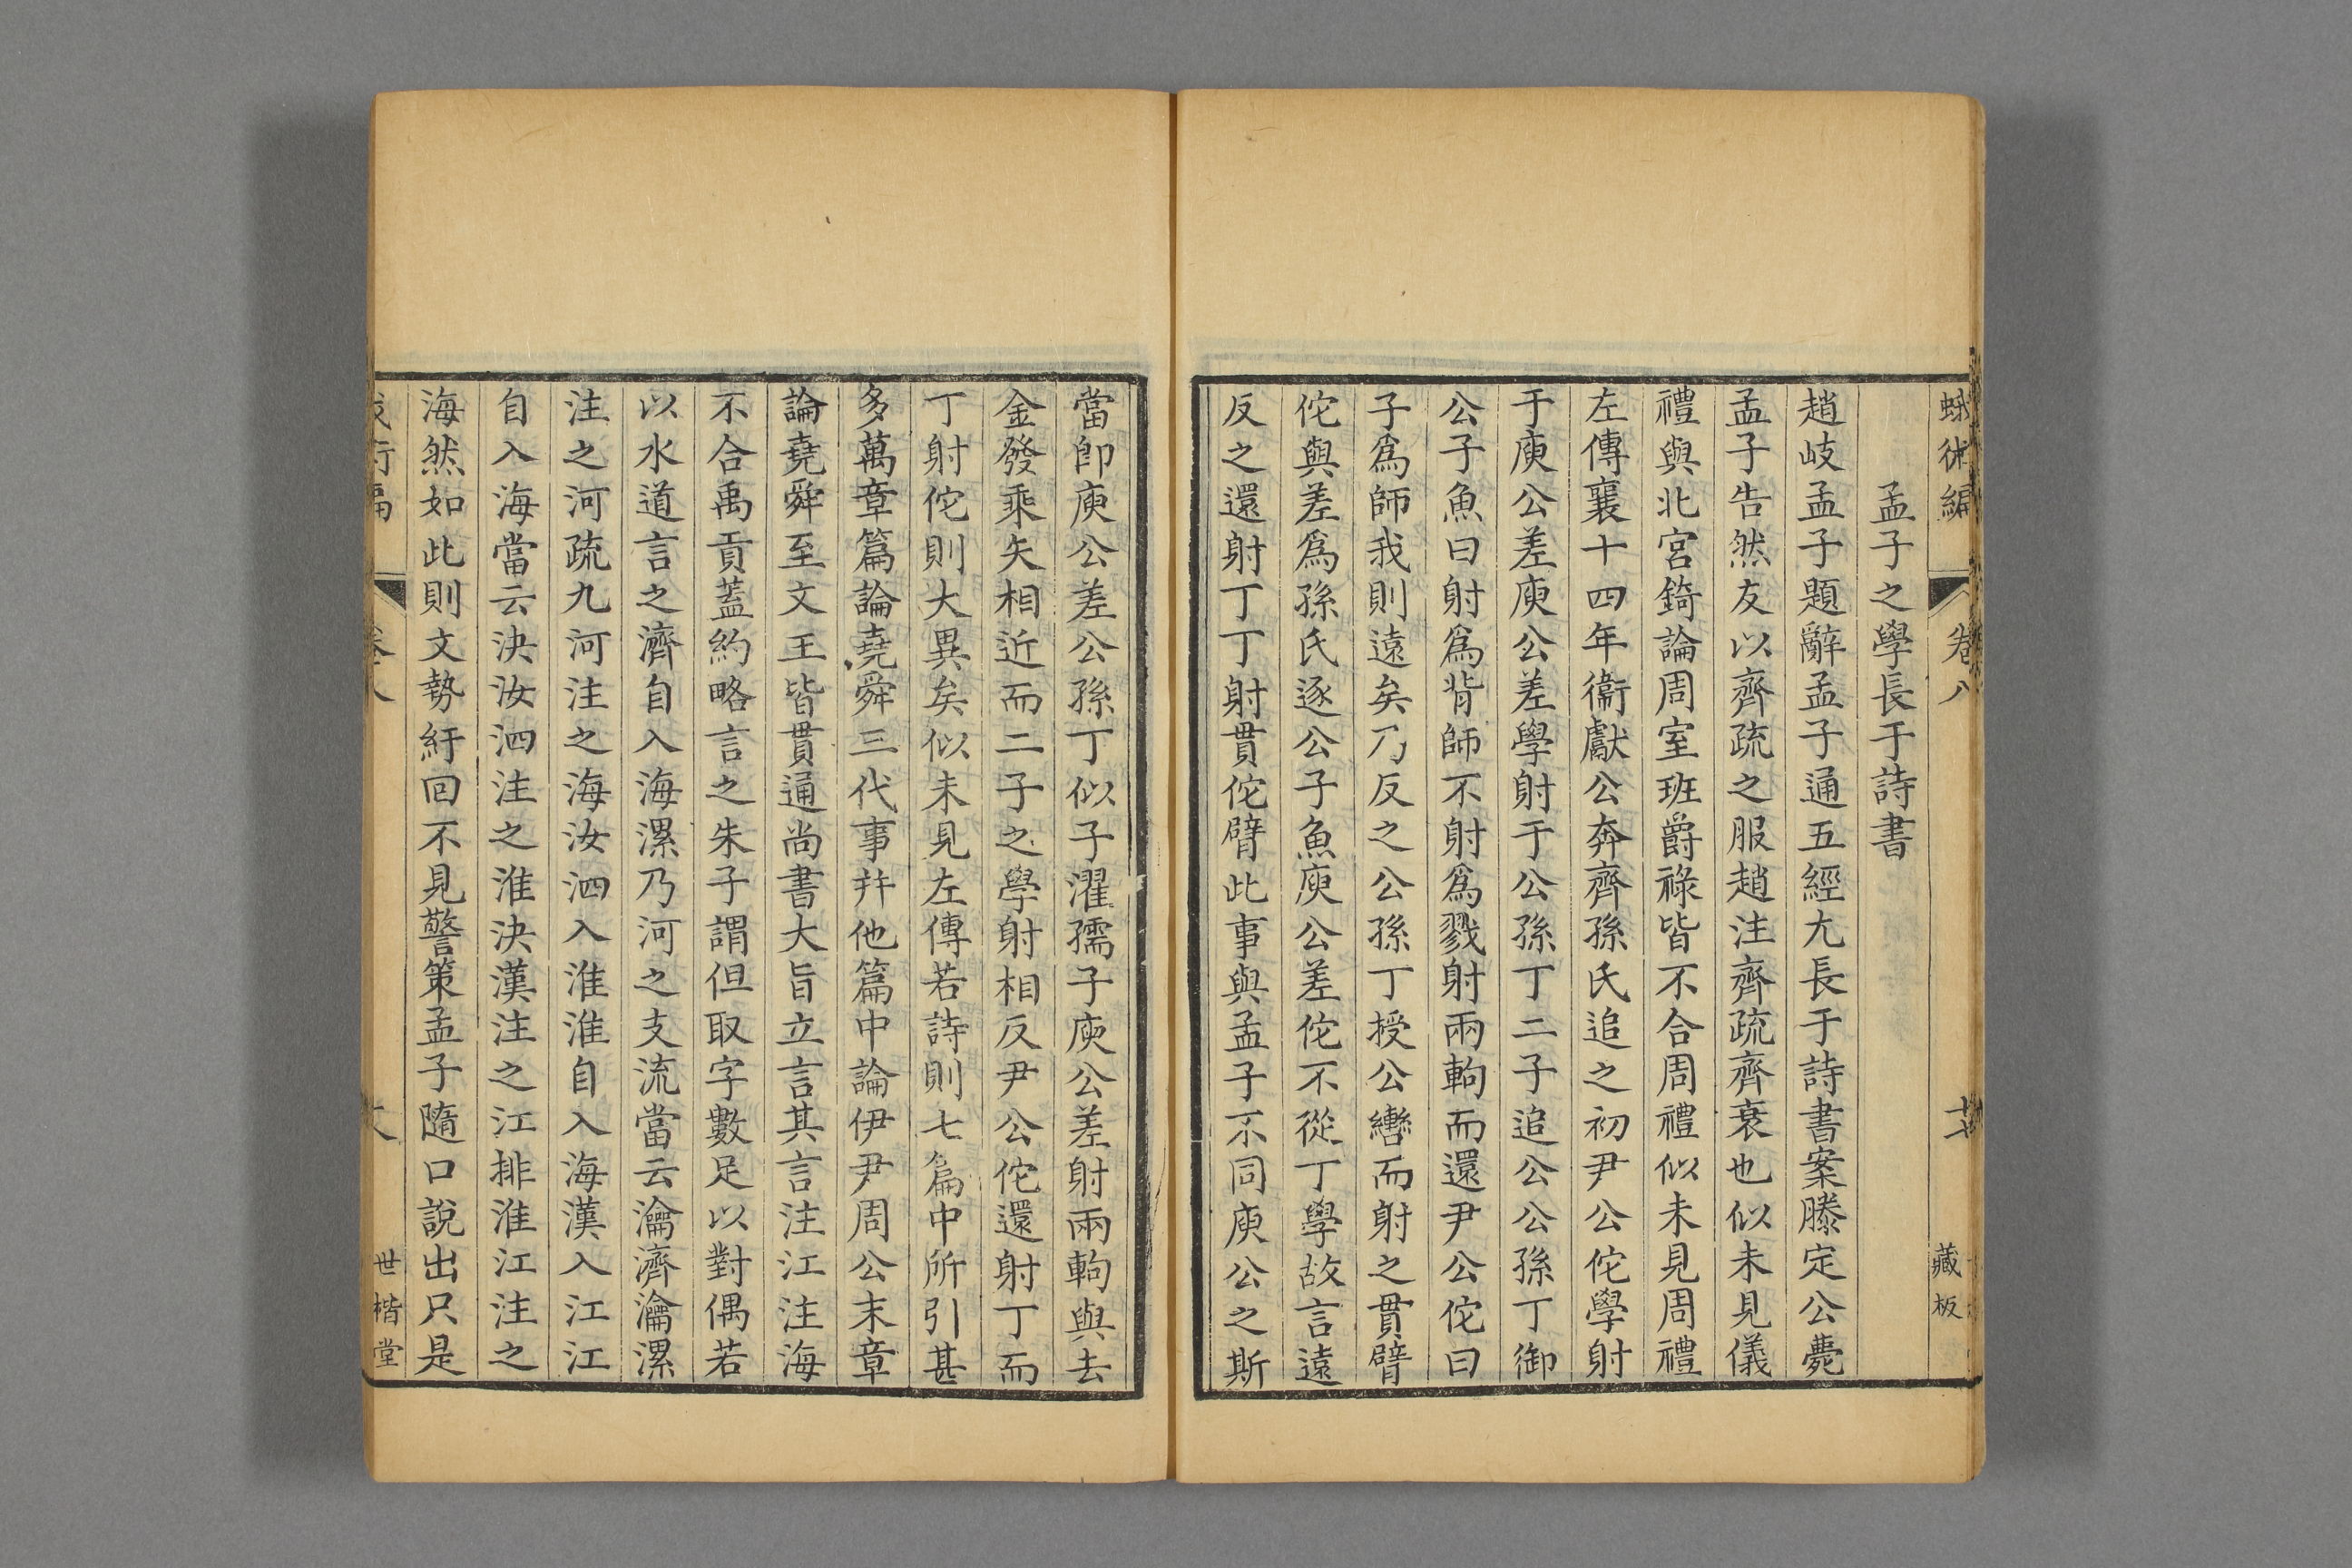 蛾術編
卷八
藏板
孟子之學長于詩書
趙岐孟子題辭孟子通五經尢長于詩書案滕定公薨
孟子告然友以齊疏之服趙注齊疏齊衰也似未見儀
禮與北宮錡論周室班爵祿皆不合周禮似未見周禮
左傳襄十四年衞獻公奔齊孫氏追之初尹公佗學射
于庾公差庾公差學射于公孫丁二子追公公孫丁御
公子魚曰射爲背師不射爲戮射兩軥而還尹公佗曰
子爲師我則遠矣乃反之公孫丁授公轡而射之貫臂
佗與差爲孫氏逐公子魚庾公差佗不從丁學故言遠
反之還射丁丁射貫佗臂此事與孟子不同庾公之斯
當卽庾公差公孫丁似子濯孺子庾公差射兩軥與去
金發乘矢相近而二子之學射相反尹公佗還射丁而
丁射佗則大異矣似未見左傳若詩則七篇中所引甚
多萬章篇論堯舜三代事幷他篇中論伊尹周公末章
論堯舜至文王皆貫通尚書大旨立言其言注江注海
不合禹貢蓋約略言之朱子謂但取字數足以對偶若
以水道言之濟自入海漯乃河之支流當云瀹濟瀹漯
注之河疏九河注之海汝泗入淮淮自入海漢入江江
自入海當云決汝泗注之淮決漢注之江排淮江注之
海然如此則文勢紆回不見警策孟子隨口說出只是
世楷堂